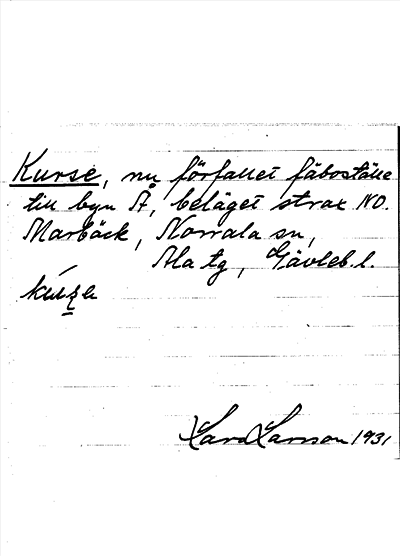 Kurse, nu förfallet fäboställe
till byn Å, beläget strax NO.
Marbäck, Norrala sn,
Ala tg, Gävleb. l.
Lars Larsson 1931